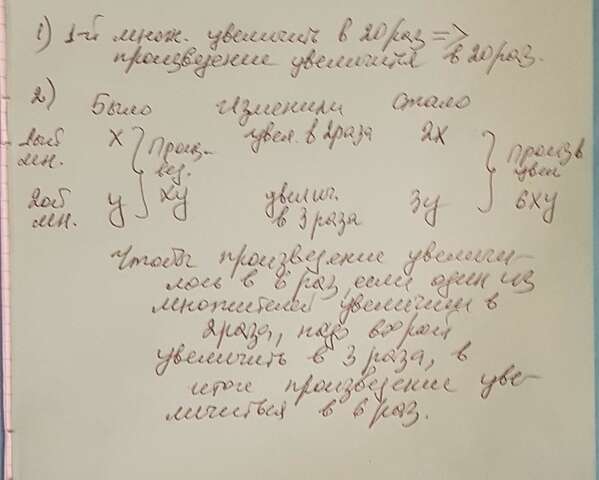 1) 1-й множ. увеличить в 20 раз =>
произведение увеличится в 20 раз.
2) Было Изменили Стало
1ый мн. x } Произ-вед. xy увел. в 2 раза 2x } Произв увел 6xy
2ой мн. y увелич. в 3 раза 3y
Чтобы произведение увеличи-
лось в 6 раз, если один из
множителей увеличили в
2 раза, надо второй
увеличить в 3 раза, в
итоге произведение уве-
личиться в 6 раз.